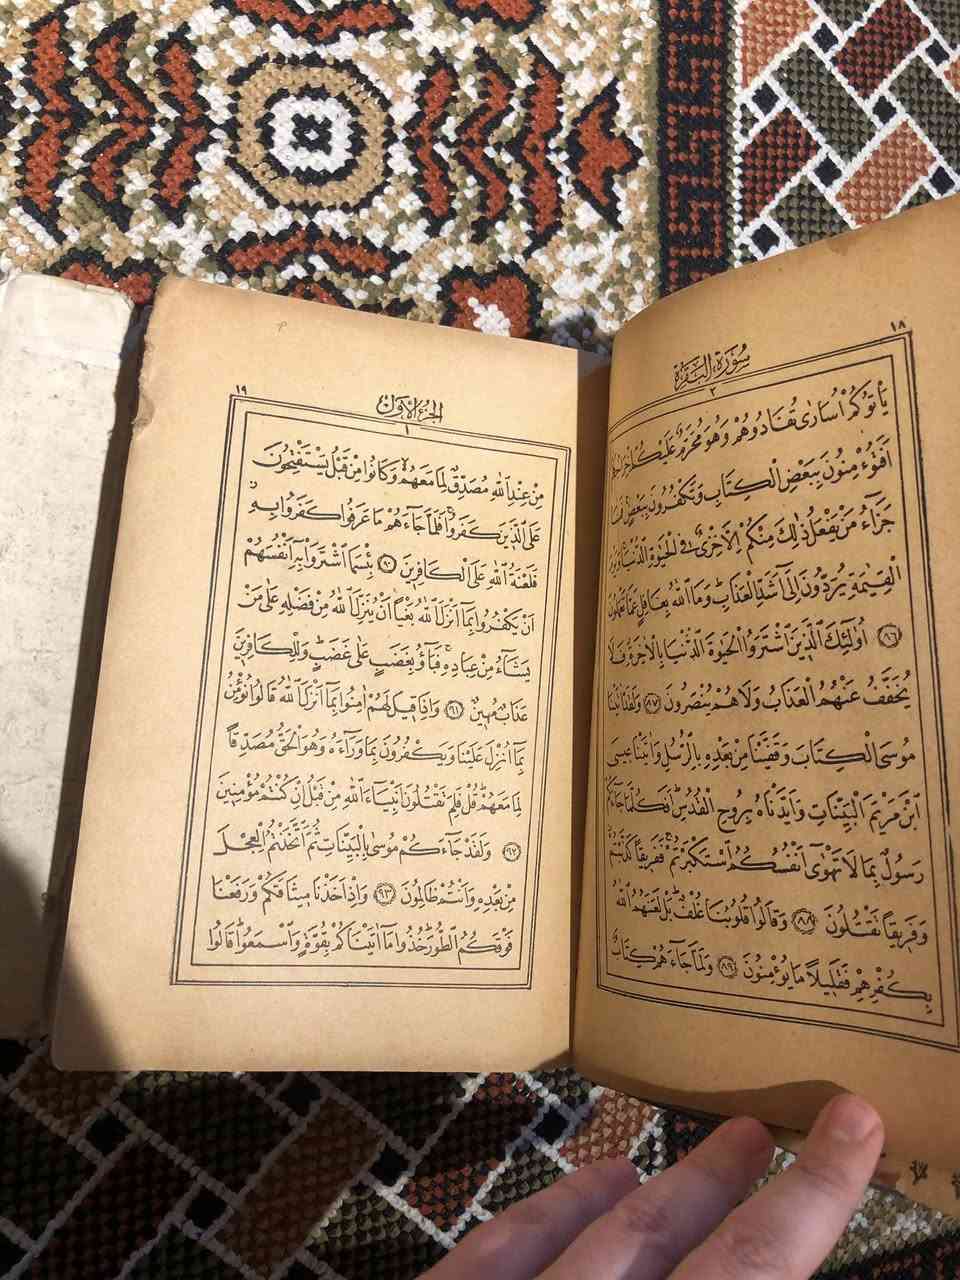 ١٨
سُورَةُ الْبَقَرَةِ
٢
يَأْتُوكُمْ أُسَارَىٰ تُفَادُوهُمْ وَهُوَ مُحَرَّمٌ عَلَيْكُمْ إِخْرَاجُهُمْ
أَفَتُؤْمِنُونَ بِبَعْضِ الْكِتَابِ وَتَكْفُرُونَ بِبَعْضٍ فَمَا
جَزَآءُ مَنْ يَفْعَلُ ذٰلِكَ مِنْكُمْ إِلَّا خِزْىٌ فِى الْحَيٰوةِ الدُّنْيَا وَيَوْمَ
الْقِيٰمَةِ يُرَدُّونَ إِلَىٰ أَشَدِّ الْعَذَابِ وَمَا اللّٰهُ بِغَافِلٍ عَمَّا تَعْمَلُونَ
﴿٨٦﴾ أُولٰٓئِكَ الَّذِينَ اشْتَرَوُا الْحَيٰوةَ الدُّنْيَا بِالْاٰخِرَةِ فَلَا
يُخَفَّفُ عَنْهُمُ الْعَذَابُ وَلَا هُمْ يُنْصَرُونَ ﴿٨٧﴾ وَلَقَدْ اٰتَيْنَا
مُوسَى الْكِتَابَ وَقَفَّيْنَا مِنْ بَعْدِهِ بِالرُّسُلِ وَاٰتَيْنَا عِيسَى
ابْنَ مَرْيَمَ الْبَيِّنَاتِ وَأَيَّدْنَاهُ بِرُوحِ الْقُدُسِ أَفَكُلَّمَا جَآءَكُمْ
رَسُولٌ بِمَا لَا تَهْوَىٰ أَنْفُسُكُمُ اسْتَكْبَرْتُمْ فَفَرِيقًا كَذَّبْتُمْ
وَفَرِيقًا تَقْتُلُونَ ﴿٨٨﴾ وَقَالُوا قُلُوبُنَا غُلْفٌ بَلْ لَعَنَهُمُ اللّٰهُ
بِكُفْرِهِمْ فَقَلِيلًا مَا يُؤْمِنُونَ ﴿٨٩﴾ وَلَمَّا جَآءَهُمْ كِتَابٌ
١٩
الْجُزْءُ الْأَوَّلُ
١
مِنْ عِنْدِ اللّٰهِ مُصَدِّقٌ لِمَا مَعَهُمْ وَكَانُوا مِنْ قَبْلُ يَسْتَفْتِحُونَ
عَلَى الَّذِينَ كَفَرُوا فَلَمَّا جَآءَهُمْ مَا عَرَفُوا كَفَرُوا بِهِ
فَلَعْنَةُ اللّٰهِ عَلَى الْكَافِرِينَ ﴿٩٠﴾ بِئْسَمَا اشْتَرَوْا بِهِ أَنْفُسَهُمْ
أَنْ يَكْفُرُوا بِمَا أَنْزَلَ اللّٰهُ بَغْيًا أَنْ يُنَزِّلَ اللّٰهُ مِنْ فَضْلِهِ عَلَىٰ مَنْ
يَشَآءُ مِنْ عِبَادِهِ فَبَآؤُ بِغَضَبٍ عَلَىٰ غَضَبٍ وَلِلْكَافِرِينَ
عَذَابٌ مُهِينٌ ﴿٩١﴾ وَإِذَا قِيلَ لَهُمْ اٰمِنُوا بِمَا أَنْزَلَ اللّٰهُ قَالُوا نُؤْمِنُ
بِمَا أُنْزِلَ عَلَيْنَا وَيَكْفُرُونَ بِمَا وَرَآءَهُ وَهُوَ الْحَقُّ مُصَدِّقًا
لِمَا مَعَهُمْ قُلْ فَلِمَ تَقْتُلُونَ أَنْبِيَآءَ اللّٰهِ مِنْ قَبْلُ إِنْ كُنْتُمْ مُؤْمِنِينَ
﴿٩٢﴾ وَلَقَدْ جَآءَكُمْ مُوسَىٰ بِالْبَيِّنَاتِ ثُمَّ اتَّخَذْتُمُ الْعِجْلَ
مِنْ بَعْدِهِ وَأَنْتُمْ ظَالِمُونَ ﴿٩٣﴾ وَإِذْ أَخَذْنَا مِيثَاقَكُمْ وَرَفَعْنَا
فَوْقَكُمُ الطُّورَ خُذُوا مَا اٰتَيْنَاكُمْ بِقُوَّةٍ وَاسْمَعُوا قَالُوا